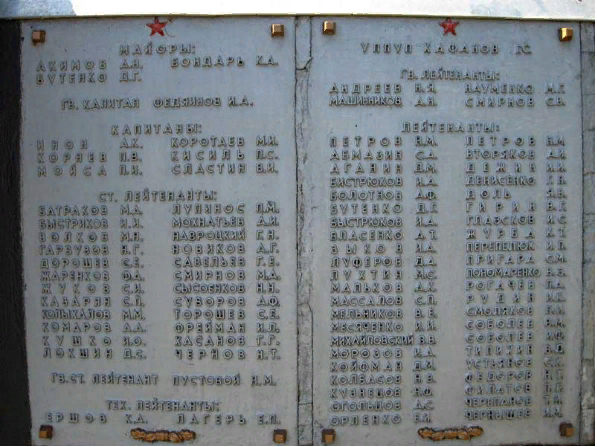 МАЙОРЫ:
АКИМОВ А.Н. БОНДАРЬ К.А.
БУТЕНКО Д.Г.
ГВ. КАПИТАН ФЕДЯИНОВ И.А.
КАПИТАНЫ:
ИНОН А.К. КОРОТАЕВ М.И.
КОРНЕВ П.В. КИСИЛЬ П.С.
МОЙСА П.И. СЛАСТИН В.И.
СТ. ЛЕЙТЕНАНТЫ:
БАТРАКОВ М.А. ЛУПИНОС П.М.
БЫСТРИКОВ И.И. МОХНАТЬЕВ А.И.
ВОЛКОВ М.Н. НАВРОЦКИЙ Г.Н.
ГАРБУЗОВ К.Г. НОВИКОВ А.Г.
ДОРОШЕВ С.Е. САВЕЛЬЕВ Г.Е.
ЖАРЕНКОВ Ф.А. СМИРНОВ М.А.
ЖУКОВ С.И. СЫСОЕНКОВ Н.Н.
КАЗАРЯН С.П. СУВОРОВ А.Ф.
КОЛЫХАЛОВ М.М. ТОРОШЕВ С.Е.
КОМАРОВ А.А. ФРЕЙМАН И.Л.
КУШКО И.О. ХАСАНОВ Г.Г.
ЛОКШИН Д.С. ЧЕРНОВ Н.Т.
ГВ. СТ. ЛЕЙТЕНАНТ ПУСТОВОЙ Н.М.
ТЕХ. ЛЕЙТЕНАНТЫ:
ЕРШОВ Х.А. ЛАГЕРЬ Е.П.
ХАФАЛОВ
ГВ. ЛЕЙТЕНАНТЫ:
АНДРЕЕВ П.Я. НАУМЕНКО М.Г.
МАШИННИКОВ А.Н. СМИРНОВ С.В.
ЛЕЙТЕНАНТЫ:
ПЕТРОВ В.М. ПЕТРОВ
АБМАЗИН С.Д. ВТОРЯКОВ А.И.
АГАНИН Д.М. ДЕЖИН
БИСТРЮКОВ И.А. ДЕНИСЕНКО
БОЛОТНОВ А.Ф. ДОЛЬ
БУТЕНКО Д.Г. ГИРИН
БЫСТРЮКОВ И.А. ГЛАЗКОВ И.С.
ВЛАСЕНКО А.Т. ЖУРБА К.Т.
ЗЫКОН И.А. ПЕРЕПЕЛЮК И.П.
ЛУФЕРОВ Д.А. ПРИГАРА С.М.
ЛУХТИН М.С. ПОНОМАРЕНКО В.Б.
МАЛЬКОВ А.Х. РОГАЧЕВ П.А.
МАССАЛОВ С.П. РУДИН И.К.
МЕЛЬНИКОВ В.Е. СМОЛЯКОВ
МЕСЯЧЕНКО И.И. СОБОЛЕВ
МИХАЙЛОВСКИЙ В.В. СОБОЛЕВ
МОРОЗОВ И.А. ТИПИХИН
КОЙФМАН Д.М. УСТЬЯНОВ
КОЛБАСОВ Н.В. ФЕДОРОВ
КУЗНЕЦОВ Н.Ф. ФИЛАТОВ
ОГОЛЬЦОВ А.С. ЧЕРЕПАНОВ
ОРЛЕНКО Е.И. ЧЕРНЫШЕВ И.М.